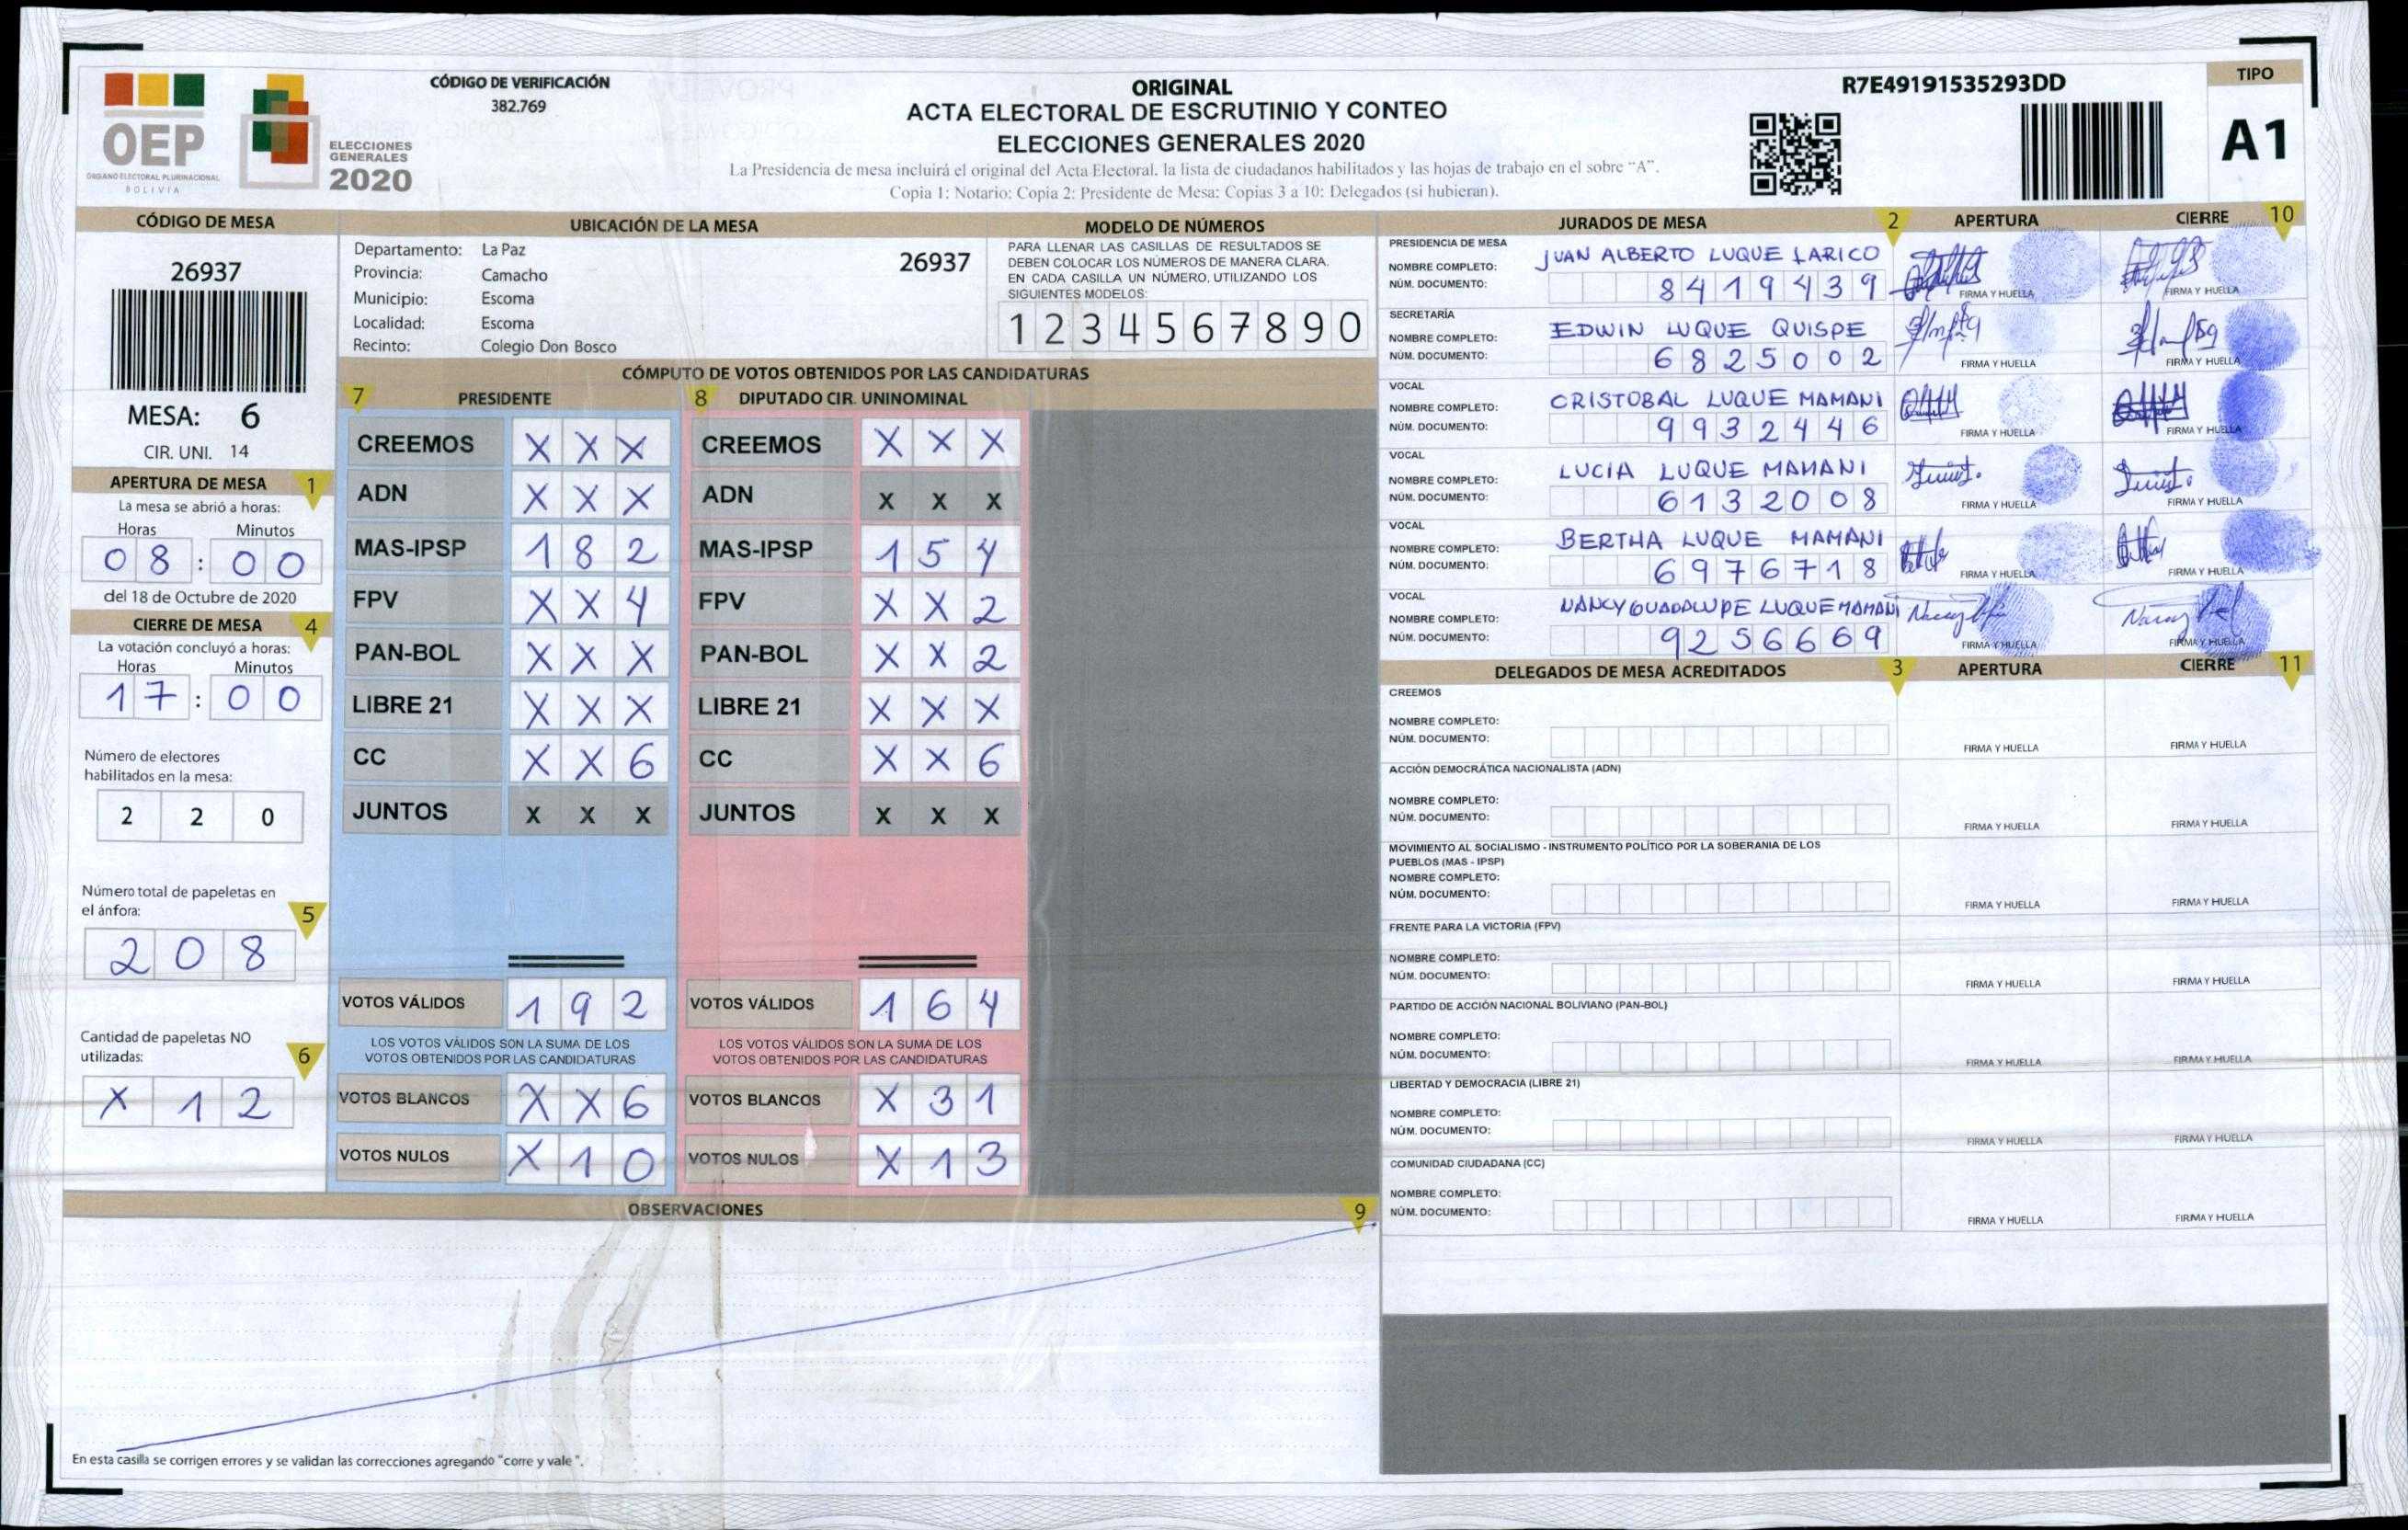 OEP
ÓRGANO ELECTORAL PLURINACIONAL
BOLIVIA
ELECCIONES
GENERALES
2020
CÓDIGO DE VERIFICACIÓN
382.769
ORIGINAL
ACTA ELECTORAL DE ESCRUTINIO Y CONTEO
ELECCIONES GENERALES 2020
La Presidencia de mesa incluirá el original del Acta Electoral, la lista de ciudadanos habilitados y las hojas de trabajo en el sobre "A".
Copia 1: Notario; Copia 2: Presidente de Mesa; Copias 3 a 10: Delegados (si hubieran).
R7E49191535293DD
TIPO
A1
CÓDIGO DE MESA
26937
MESA: 6
CIR. UNI. 14
APERTURA DE MESA 1
La mesa se abrió a horas:
Horas Minutos
0 8 : 0 0
del 18 de Octubre de 2020
CIERRE DE MESA 4
La votación concluyó a horas:
Horas Minutos
1 7 : 0 0
Número de electores
habilitados en la mesa:
2 2 0
Número total de papeletas en
el ánfora: 5
2 0 8
Cantidad de papeletas NO
utilizadas: 6
X 1 2
UBICACIÓN DE LA MESA
Departamento: La Paz
26937
Provincia: Camacho
Municipio: Escoma
Localidad: Escoma
Recinto: Colegio Don Bosco
MODELO DE NÚMEROS
PARA LLENAR LAS CASILLAS DE RESULTADOS SE
DEBEN COLOCAR LOS NÚMEROS DE MANERA CLARA.
EN CADA CASILLA UN NÚMERO, UTILIZANDO LOS
SIGUIENTES MODELOS:
1 2 3 4 5 6 7 8 9 0
CÓMPUTO DE VOTOS OBTENIDOS POR LAS CANDIDATURAS
7 PRESIDENTE
CREEMOS X X X
ADN X X X
MAS-IPSP 1 8 2
FPV X X 4
PAN-BOL X X X
LIBRE 21 X X X
CC X X 6
JUNTOS X X X
VOTOS VÁLIDOS 1 9 2
LOS VOTOS VÁLIDOS SON LA SUMA DE LOS
VOTOS OBTENIDOS POR LAS CANDIDATURAS
VOTOS BLANCOS X X 6
VOTOS NULOS X 1 0
8 DIPUTADO CIR. UNINOMINAL
CREEMOS X X X
ADN X X X
MAS-IPSP 1 5 4
FPV X X 2
PAN-BOL X X 2
LIBRE 21 X X X
CC X X 6
JUNTOS X X X
VOTOS VÁLIDOS 1 6 4
LOS VOTOS VÁLIDOS SON LA SUMA DE LOS
VOTOS OBTENIDOS POR LAS CANDIDATURAS
VOTOS BLANCOS X 3 1
VOTOS NULOS X 1 3
OBSERVACIONES 9
En esta casilla se corrigen errores y se validan las correcciones agregando "corre y vale".
JURADOS DE MESA 2 APERTURA CIERRE 10
PRESIDENCIA DE MESA
NOMBRE COMPLETO: JUAN ALBERTO LUQUE LARICO
NÚM. DOCUMENTO: 8 4 1 9 4 3 9
FIRMA Y HUELLA FIRMA Y HUELLA
SECRETARÍA
NOMBRE COMPLETO: EDWIN LUQUE QUISPE
NÚM. DOCUMENTO: 6 8 2 5 0 0 2
FIRMA Y HUELLA FIRMA Y HUELLA
VOCAL
NOMBRE COMPLETO: CRISTOBAL LUQUE MAMANI
NÚM. DOCUMENTO: 9 9 3 2 4 4 6
FIRMA Y HUELLA FIRMA Y HUELLA
VOCAL
NOMBRE COMPLETO: LUCIA LUQUE MAMANI
NÚM. DOCUMENTO: 6 1 3 2 0 0 8
FIRMA Y HUELLA FIRMA Y HUELLA
VOCAL
NOMBRE COMPLETO: BERTHA LUQUE MAMANI
NÚM. DOCUMENTO: 6 9 7 6 7 1 8
FIRMA Y HUELLA FIRMA Y HUELLA
VOCAL
NOMBRE COMPLETO: NANCY GUADALUPE LUQUE MAMANI
NÚM. DOCUMENTO: 9 2 5 6 6 6 9
FIRMA Y HUELLA FIRMA Y HUELLA
DELEGADOS DE MESA ACREDITADOS 3 APERTURA CIERRE 11
CREEMOS
NOMBRE COMPLETO:
NÚM. DOCUMENTO:
FIRMA Y HUELLA FIRMA Y HUELLA
ACCIÓN DEMOCRÁTICA NACIONALISTA (ADN)
NOMBRE COMPLETO:
NÚM. DOCUMENTO:
FIRMA Y HUELLA FIRMA Y HUELLA
MOVIMIENTO AL SOCIALISMO - INSTRUMENTO POLÍTICO POR LA SOBERANIA DE LOS
PUEBLOS (MAS - IPSP)
NOMBRE COMPLETO:
NÚM. DOCUMENTO:
FIRMA Y HUELLA FIRMA Y HUELLA
FRENTE PARA LA VICTORIA (FPV)
NOMBRE COMPLETO:
NÚM. DOCUMENTO:
FIRMA Y HUELLA FIRMA Y HUELLA
PARTIDO DE ACCIÓN NACIONAL BOLIVIANO (PAN-BOL)
NOMBRE COMPLETO:
NÚM. DOCUMENTO:
FIRMA Y HUELLA FIRMA Y HUELLA
LIBERTAD Y DEMOCRACIA (LIBRE 21)
NOMBRE COMPLETO:
NÚM. DOCUMENTO:
FIRMA Y HUELLA FIRMA Y HUELLA
COMUNIDAD CIUDADANA (CC)
NOMBRE COMPLETO:
NÚM. DOCUMENTO:
FIRMA Y HUELLA FIRMA Y HUELLA